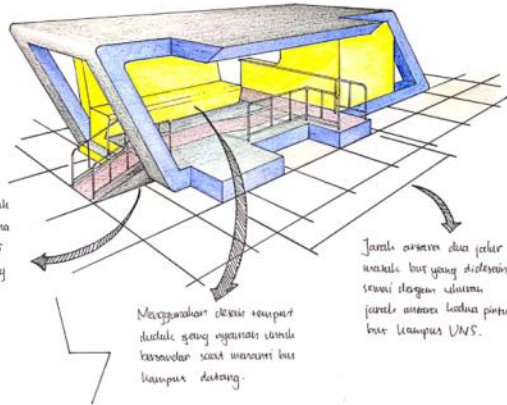 Menggunakan desain tempat
duduk yang nyaman untuk
bersandar saat menanti bus
kampus datang.
Jarak antara dua jalur
masuk bus yang didesain
sesuai dengan ukuran
jarak antara kedua pintu
bus kampus UNS.